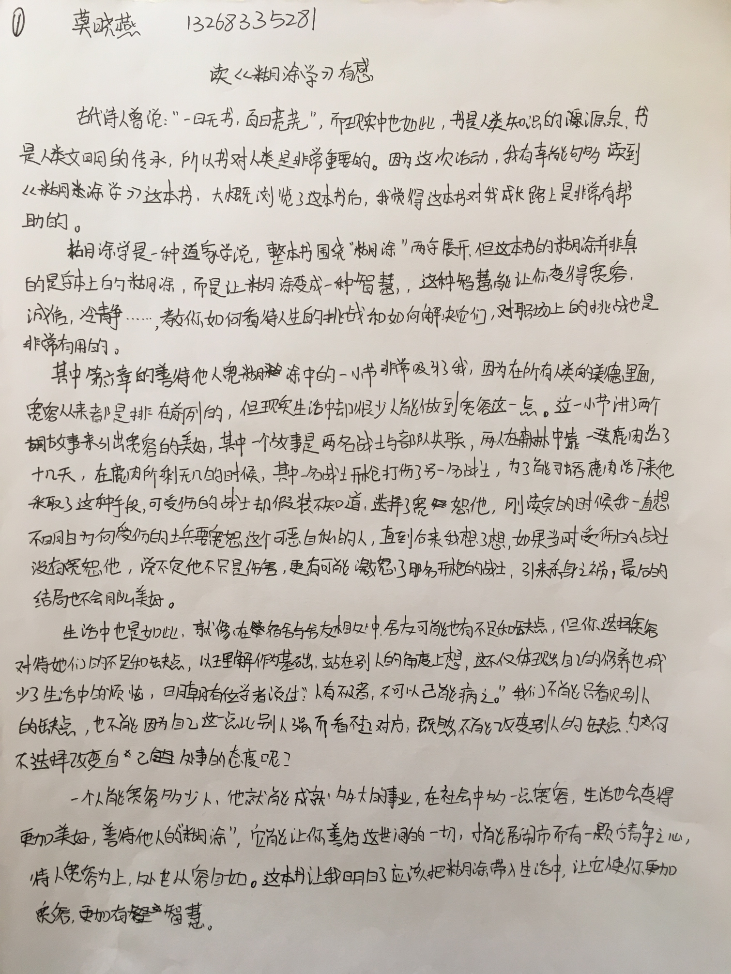 ① 莫晓燕 13268335281
读《糊涂学》有感
古代诗人曾说:“一日无书,百日荒芜”,而现实中也如此,书是人类知识的源泉,书
是人类文明的传承,所以书对人类是非常重要的。因为这次活动,我有幸能够 读到
《糊涂学》这本书,大概浏览了这本书后,我觉得这本书对我成长路上是非常有帮
助的。
糊涂学是一种道家学说,整本书围绕“糊涂”两字展开,但这本书的糊涂并非真
的是字本上的糊涂,而是让糊涂变成一种智慧,这种智慧能让你变得宽容,
诚信,冷静……,教你如何看待人生的挑战和如何解决它们,对职场上的挑战也是
非常有用的。
其中第六章的善待他人宽糊涂中的一小节非常吸引了我,因为在所有人类的美德里面,
宽容从来都是排在前列的,但现实生活中却很少人能做到宽容这一点。这一小节讲了两个
故事来引出宽容的美好,其中一个故事是两名战士与部队失联,两人在森林中靠一头鹿肉活了
十几天,在鹿肉所剩无几的时候,其中一名战士开枪打伤了另一名战士,为了能靠鹿肉活下来他
采取了这种手段,可受伤的战士却假装不知道,选择了宽恕他,刚读完的时候我一直想
不明白为何受伤的士兵要宽恕这个可恶自私的人,直到后来我想了想,如果当时受伤的战士
没有宽恕他,说不定他不只是伤害,更有可能激怒了那名开枪的战士,引来杀身之祸,最后的
结局也不会那么美好。
生活中也是如此,就像在宿舍与舍友相处中,舍友可能也有不足和缺点,但你选择宽容
对待她们的不足和缺点,以理解作为基础,站在别人的角度上想,这不仅体现出自己的修养也减
少了生活中的烦恼,明朝有位学者说过:“人有不及者,不可以己能病之。”我们不能只看见别人
的缺点,也不能因为自己这一点比别人强而看不起对方,既然不能改变别人的缺点,为何
不选择改变自己处事的态度呢?
一个人能宽容多少人,他就能成就多大的事业,在社会中多一点宽容,生活也会变得
更加美好,善待他人的“糊涂”,它能让你善待这世间的一切,才能居闹市而有一颗清净之心,
待人宽容为上,处世从容自如。这本书让我明白了应该把糊涂带入生活中,让它使你更加
宽容,更加有智慧。